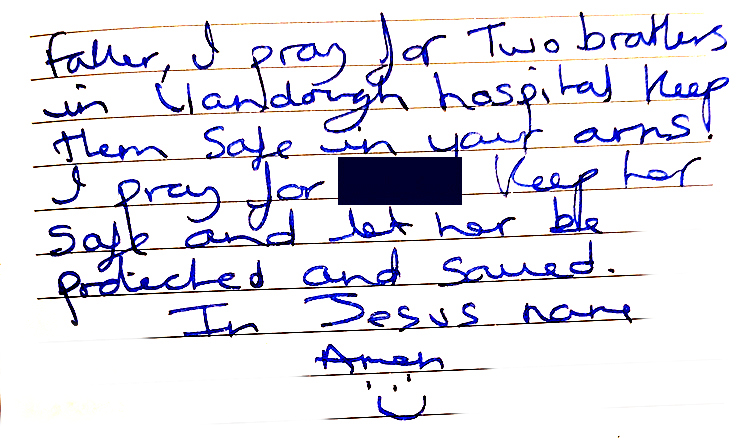 Father, I pray for Two brothers
in Llandough hospital Keep
them safe in your arms.
I pray for Keep her
safe and let her be
protected and saved.
In Jesus name
Amen